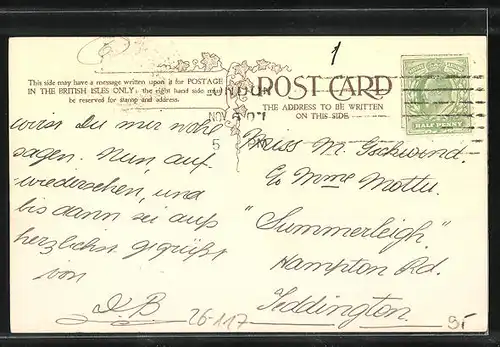 This side may have a message written upon it for POSTAGE
IN THE BRITISH ISLES ONLY; the right hand side may
be reserved for stamp and address.
wirst Du mir wohl
sagen. Nun, auf-
wiedersehen, und
bis dann sei aufs
herzlichst gegrüßt
von
D. B
26·117
1
LONDON
NOV 6 07
5
POST CARD
THE ADDRESS TO BE WRITTEN
ON THIS SIDE
HALF PENNY
Miss M. Gschwind-
c/o Mme Mottu.
"Summerleigh".
Hampton Rd.
Teddington.